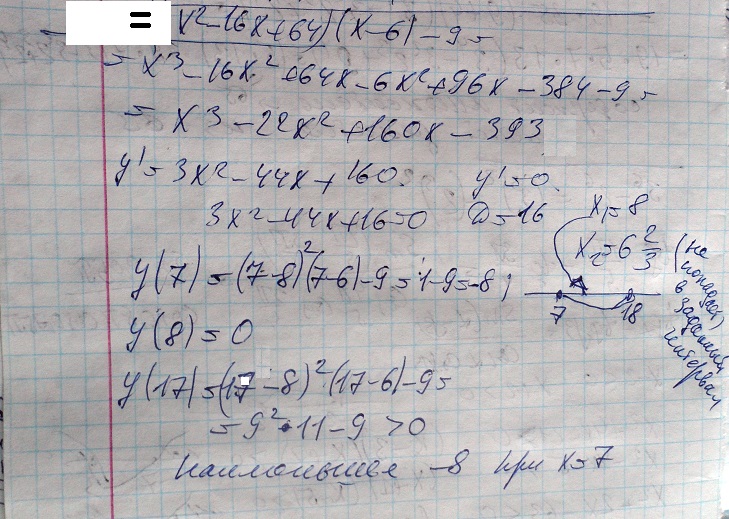 = x²-16x+64)(x-6)-9=
= x³-16x²+64x-6x²+96x-384-9=
= x³-22x²+160x-393
y'=3x²-44x+160. y'=0.
3x²-44x+160=0 D=16 x₁=8
x₂=6 2/3 (не попадает в заданный интервал)
y(7)=(7-8)²(7-6)-9=1-9=-8;
7 18
y(8)=0
y(17)=(17-8)²(17-6)-9=
=9²·11-9>0
наименьшее -8 при x=7